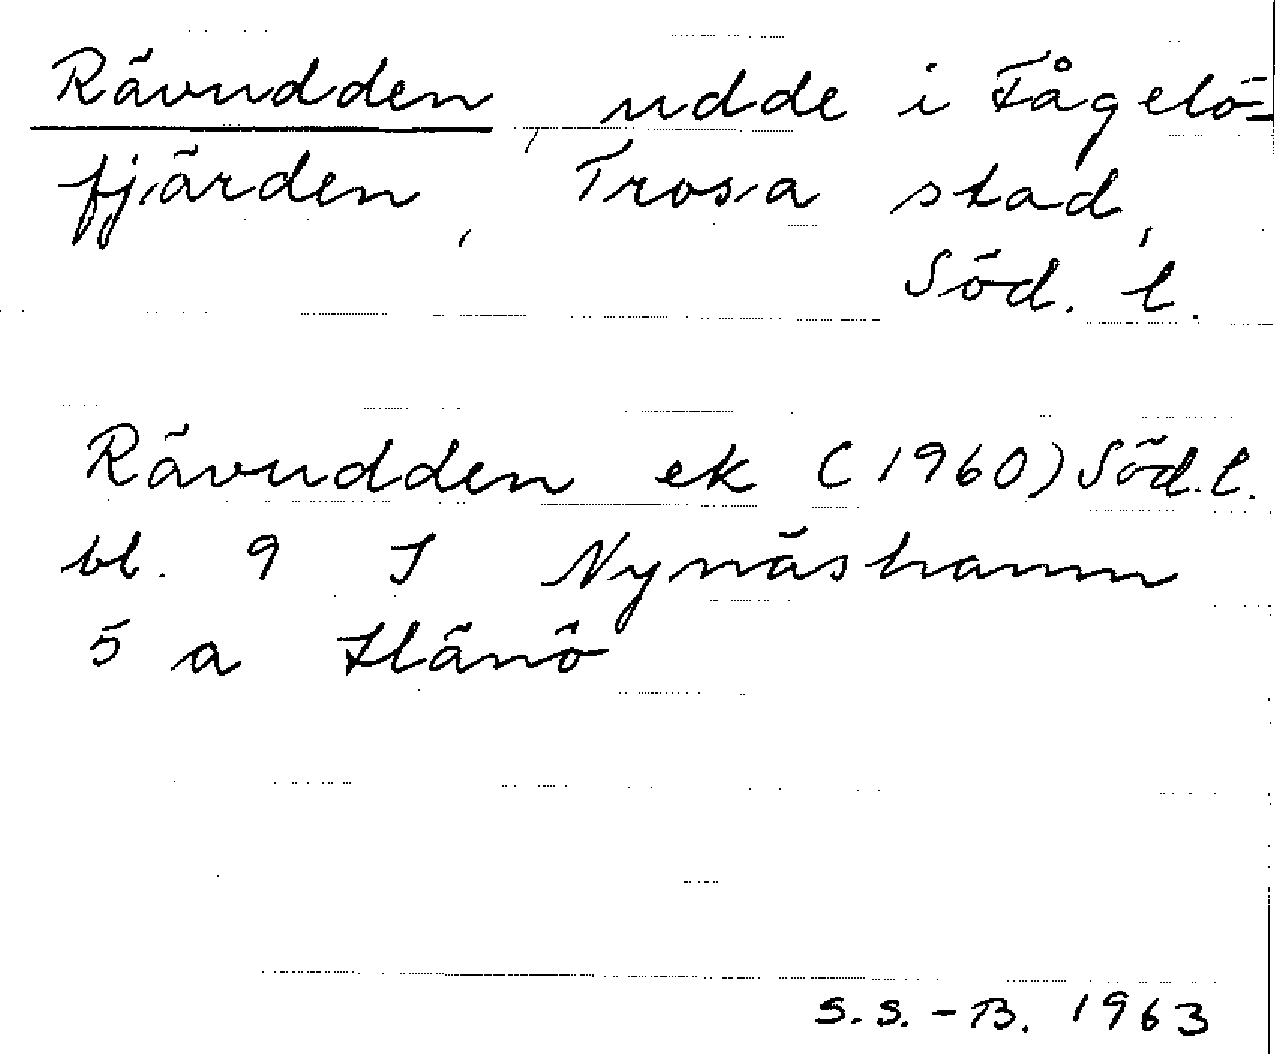 Rävudden, udde i Fågelö=
fjärden, Trosa stad,
Söd. l.
Rävudden ek (1960) Söd. l.
bl. 9 I Nynäshamn
5 a Hänö
S.S.-B. 1963